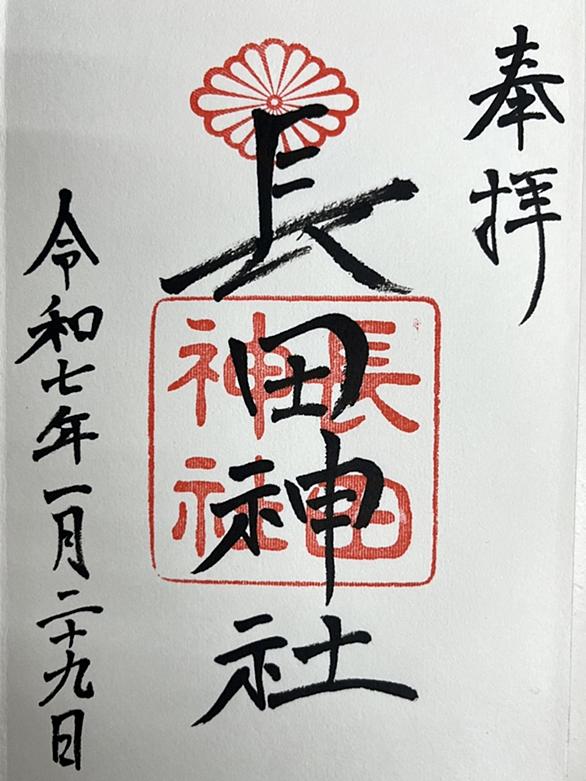 奉拝
長田神社
長田
神社
令和七年一月二十九日